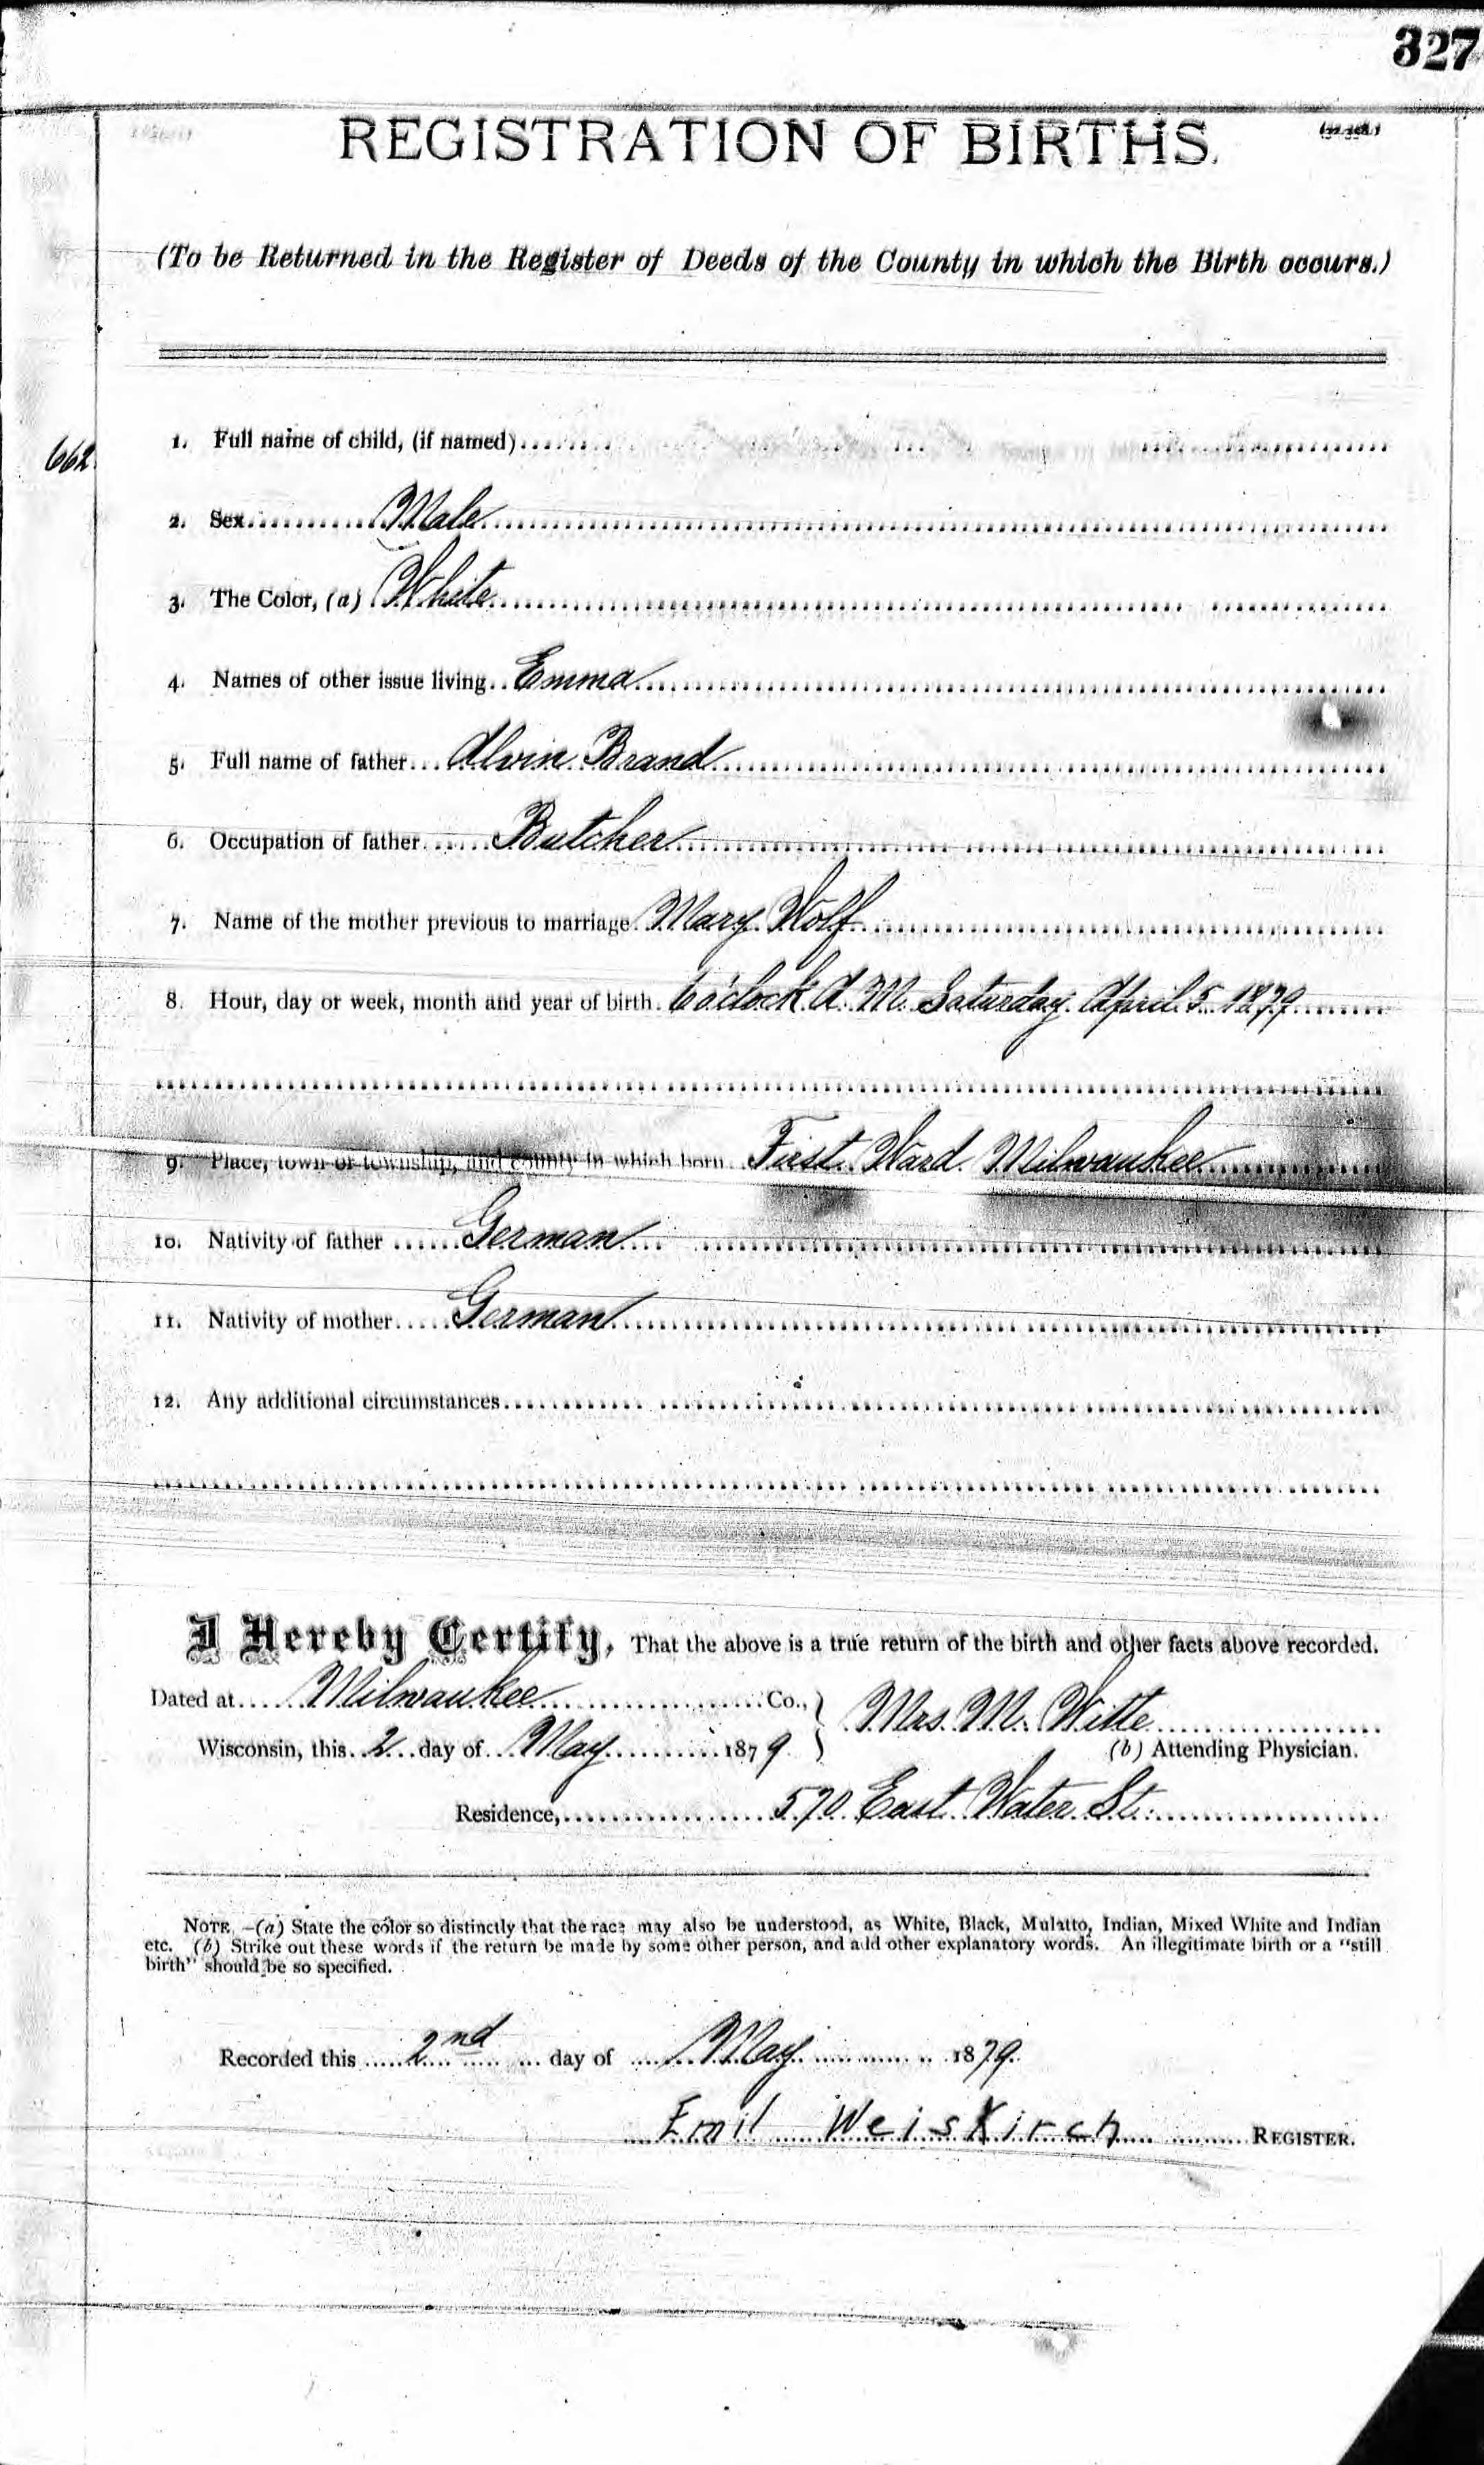 327
REGISTRATION OF BIRTHS.
(To be Returned in the Register of Deeds of the County in which the Birth occurs.)
662
1. Full name of child, (if named)
2. Sex Male
3. The Color, (a) White
4. Names of other issue living Emma
5. Full name of father Alvin Brand
6. Occupation of father Butcher
7. Name of the mother previous to marriage Mary Wolf
8. Hour, day or week, month and year of birth 6 o'clock A. M. Saturday April 5 1879
9. Place, town or township, and county in which born First Ward Milwaukee
10. Nativity of father German
11. Nativity of mother German
12. Any additional circumstances
I Hereby Certify, That the above is a true return of the birth and other facts above recorded.
Dated at Milwaukee Co., } Mrs. M. Witte
Wisconsin, this 2 day of May 1879 (b) Attending Physician.
Residence, 570 East Water St.
NOTE —(a) State the color so distinctly that the race may also be understood, as White, Black, Mulatto, Indian, Mixed White and Indian
etc. (b) Strike out these words if the return be made by some other person, and add other explanatory words. An illegitimate birth or a "still
birth" should be so specified.
Recorded this 2nd day of May 1879.
Emil Weiskirch REGISTER.